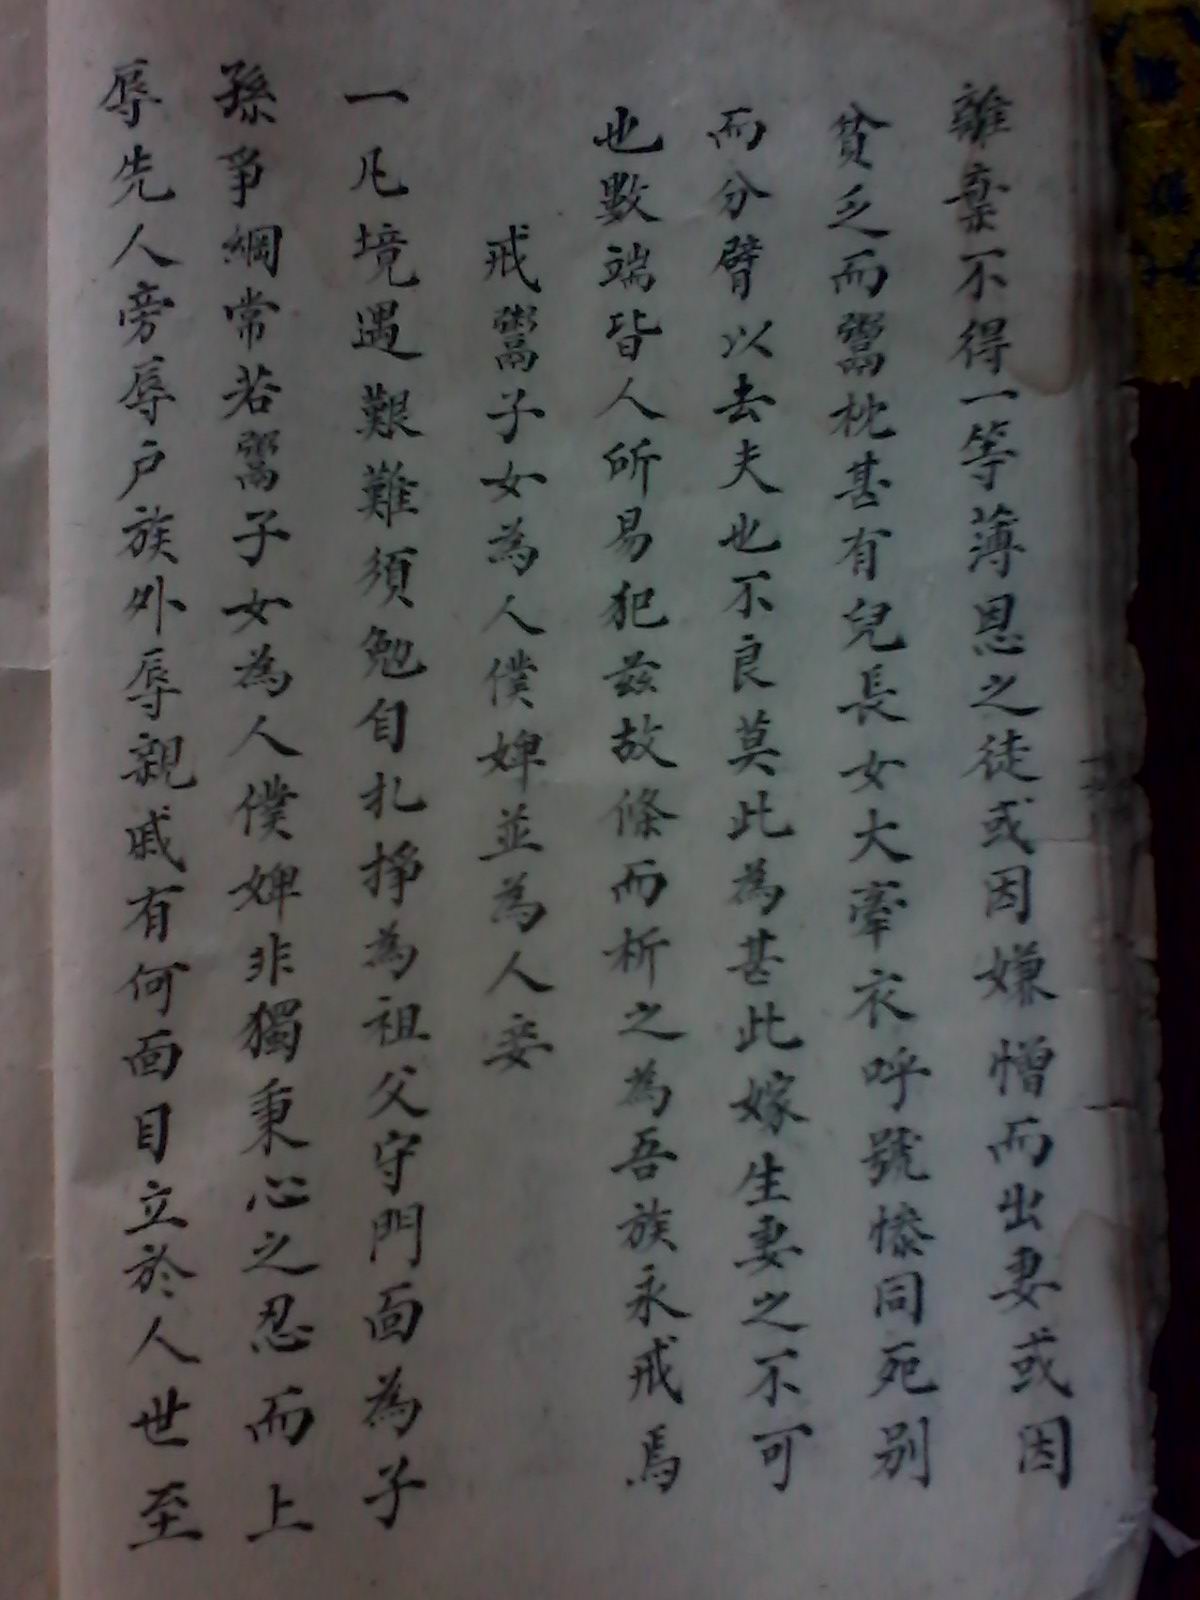 離棄不得一等薄恩之徒或因嫌憎而出妻或因
貧乏而鬻枕甚有兒長女大牽衣呼號慘同死别
而分臂以去夫也不良莫此為甚此嫁生妻之不可
也數端皆人所易犯茲故條而析之為吾族永戒焉
戒鬻子女為人僕婢並為人妾
一凡境遇艱難須勉自扎掙為祖父守門面為子
孫爭綱常若鬻子女為人僕婢非獨秉心之忍而上
辱先人旁辱户族外辱親戚有何面目立於人世至